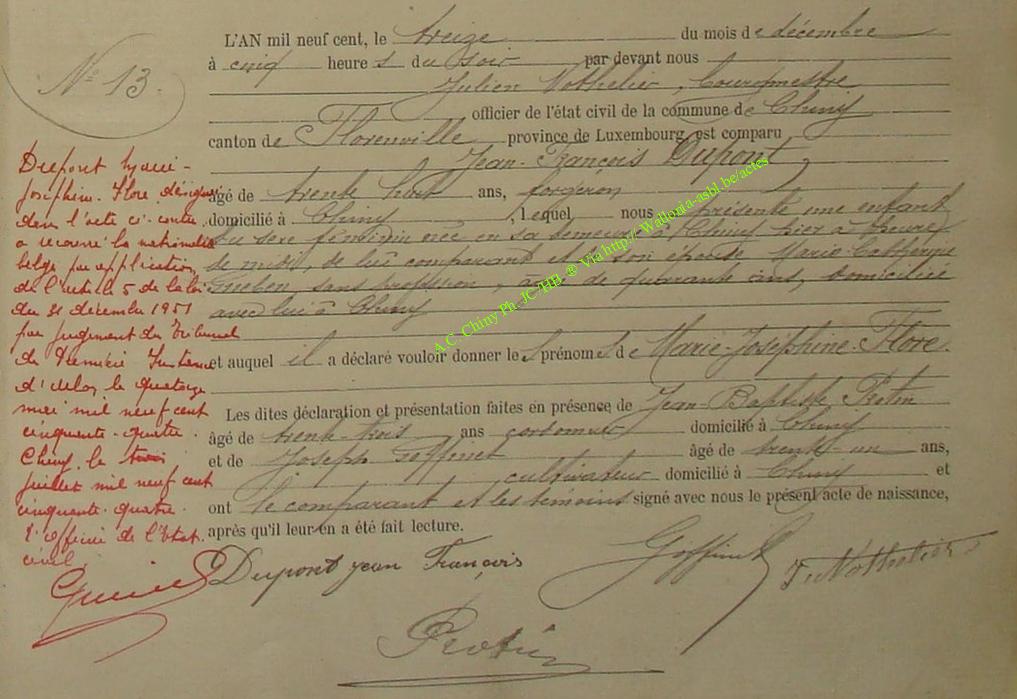 N° 13.
L'AN mil neuf cent, le treize du mois de décembre
à cinq heures du soir par devant nous
Julien Nothelier, Bourgmestre
officier de l'état civil de la commune de Chiny
canton de Florenville province de Luxembourg est comparu
Jean-François Dupont,
âgé de trente huit ans, forgeron
domicilié à Chiny, lequel nous a présenté une enfant
du sexe féminin née en sa demeure à Chiny hier à heures
de midi, de lui comparant et de son épouse Marie Catherine
sans profession, âgée de quarante ans, domiciliée
avec lui à Chiny
et auquel il a déclaré vouloir donner les prénoms de Marie-Joséphine Flore.
Les dites déclaration et présentation faites en présence de Jean-Baptiste Protin
âgé de trente-trois ans cordonnier domicilié à Chiny
et de Joseph Goffinet âgé de trente-un ans,
cultivateur domicilié à Chiny et
ont le comparant et les témoins signé avec nous le présent acte de naissance,
après qu'il leur en a été fait lecture.
Dupont jean François
Goffinet
J. Nothelier
Protin
Dupont Marie-
Joséphine. Flore désignée
dans l'acte ci-contre
a recouvré la nationalité
belge par application
de l'article 5 de la loi
du 31 décembre 1951
par jugement du Tribunal
de Première Instance
d'Arlon le quatorze
mai mil neuf cent
cinquante-quatre.
Chiny, le trois
juillet mil neuf cent
cinquante-quatre.
L'officier de l'Etat
civil,
A.C. Chiny Ph. JC-HB. ® Via http:// Wallonia-asbl.be/actes